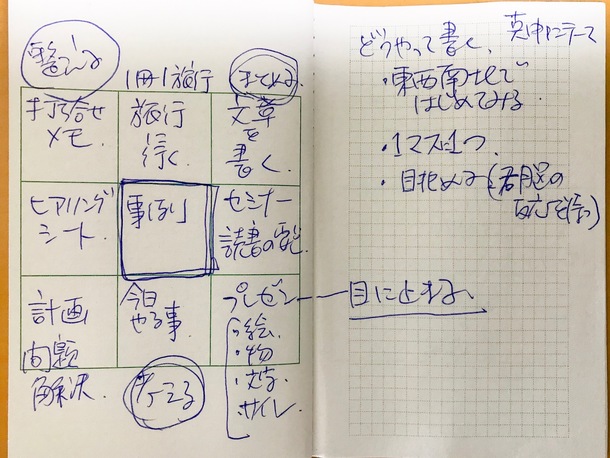 整える
1冊1旅行
まとめる
打ち合せ
メモ.
旅行
行く.
文章
を
書く.
ヒアリング
シート.
セミナー
読書の
計画
問題
解決.
今日
やる事
プレゼン
・絵.
・物
・文字.
考える
どうやって書く、
真中にテーマ
・東西南北で
はじめてみる.
・1マス1つ
(右脳の
目に止まる、